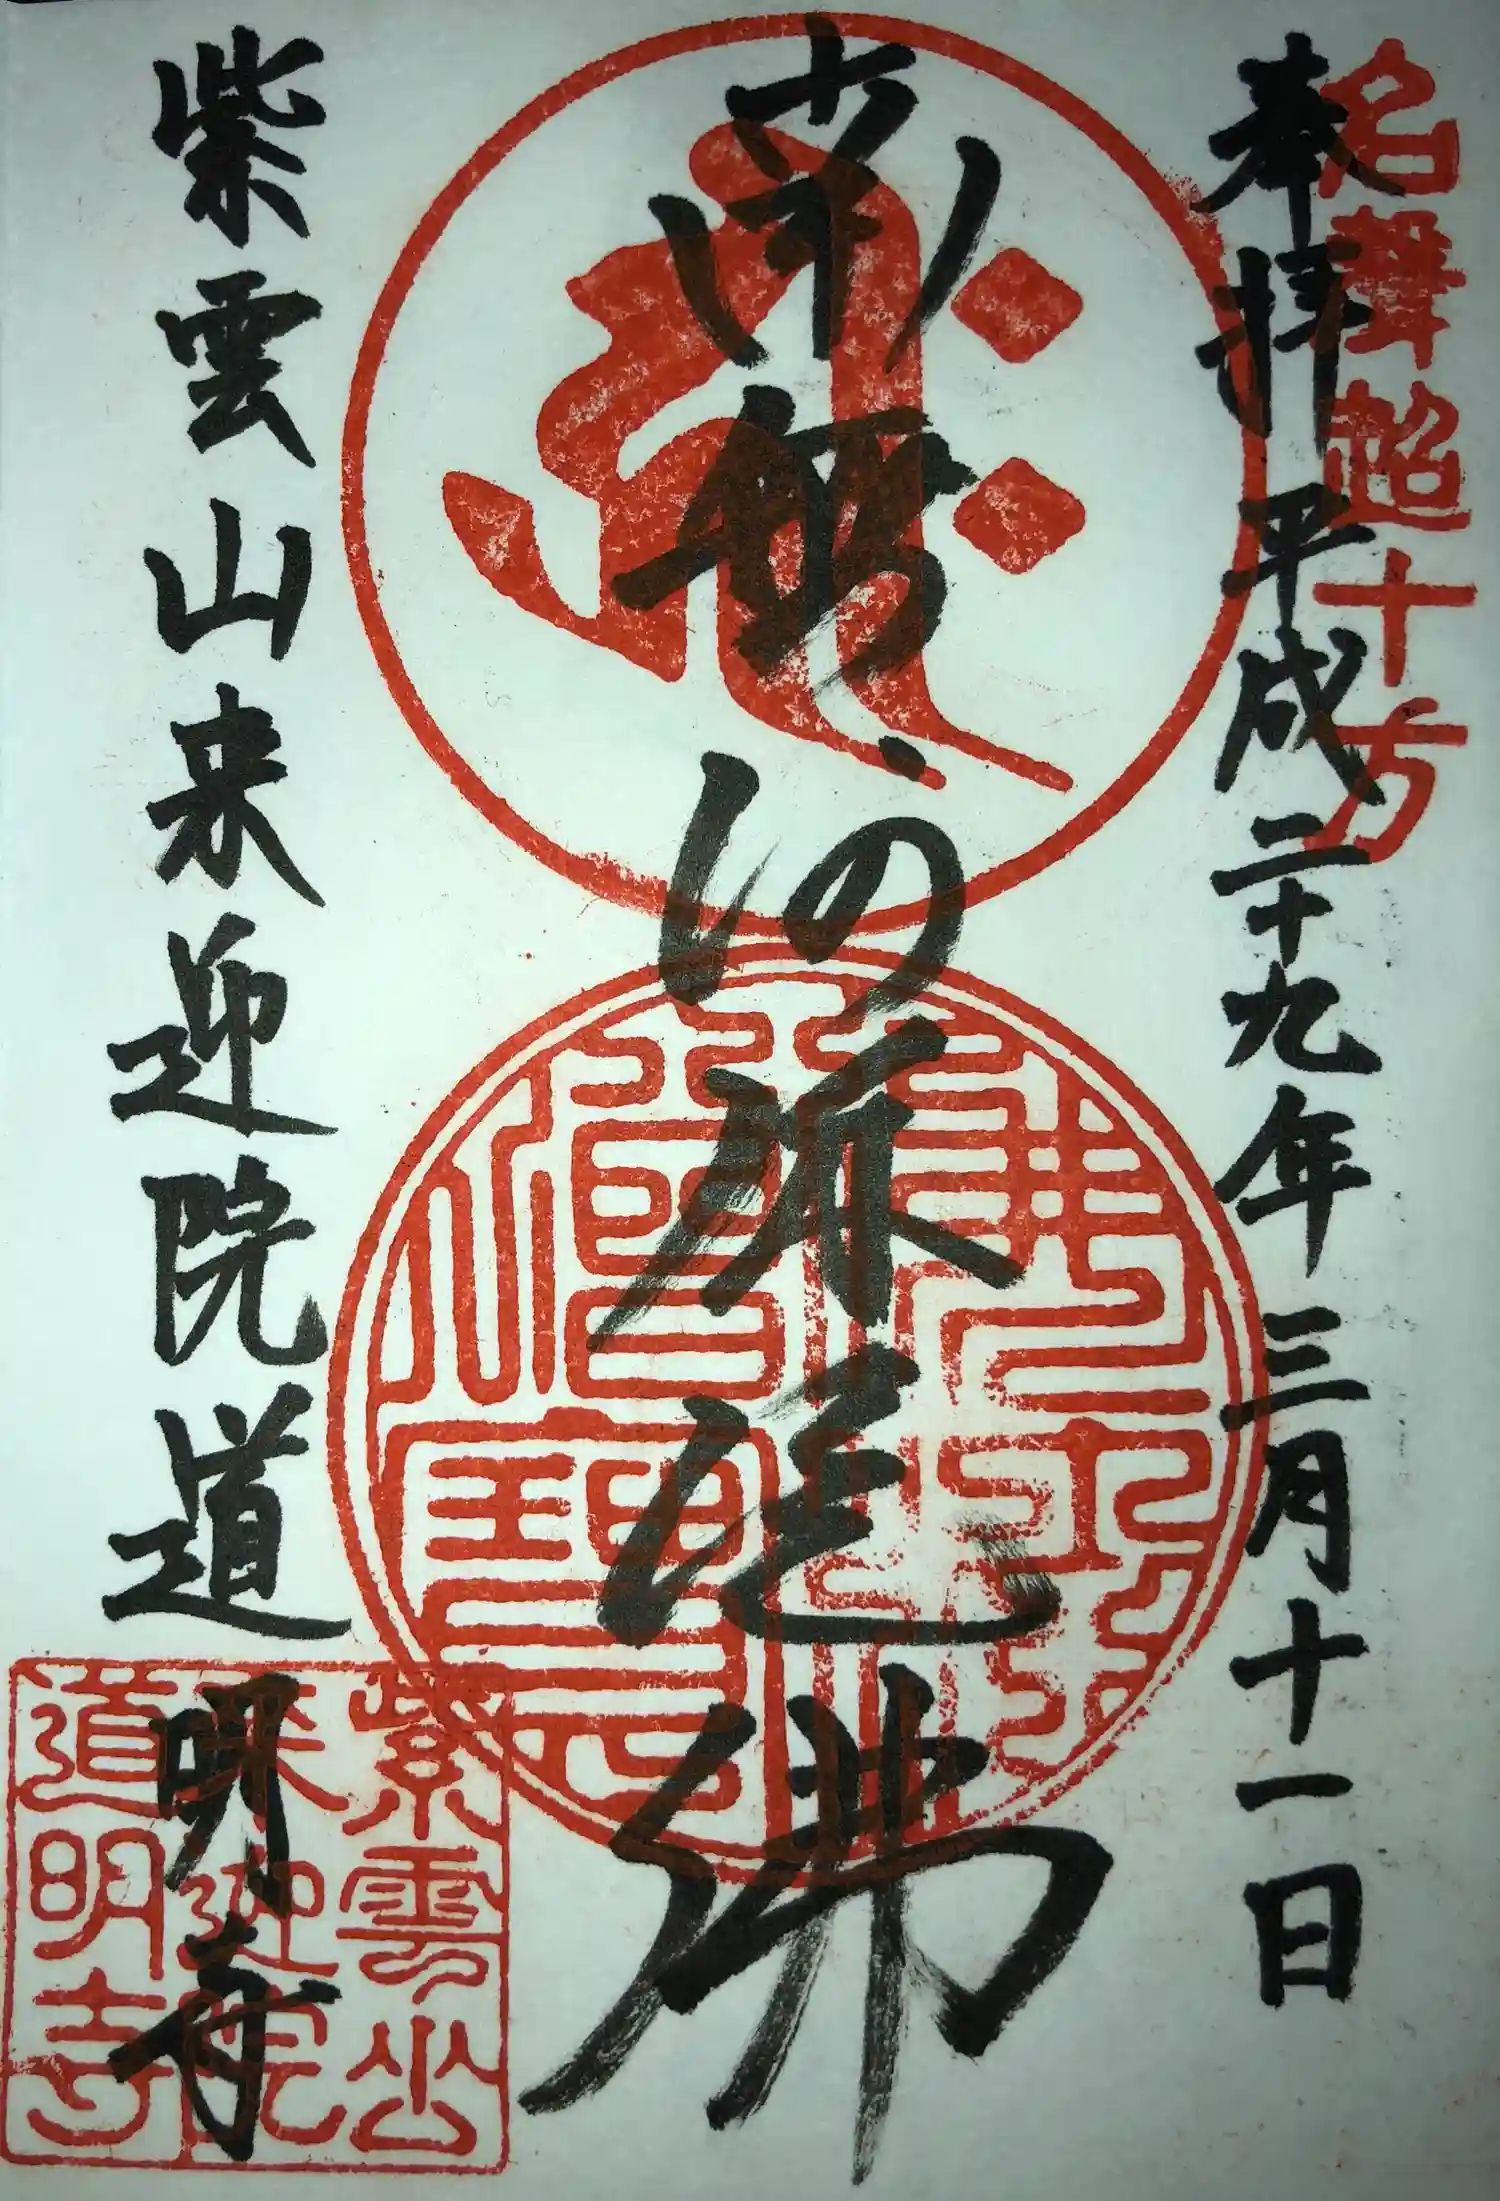 名聲超十方
奉拝 平成二十九年 三月十一日
南無阿弥陀佛
紫雲山来迎院道明寺
紫雲山
来迎院
道明寺